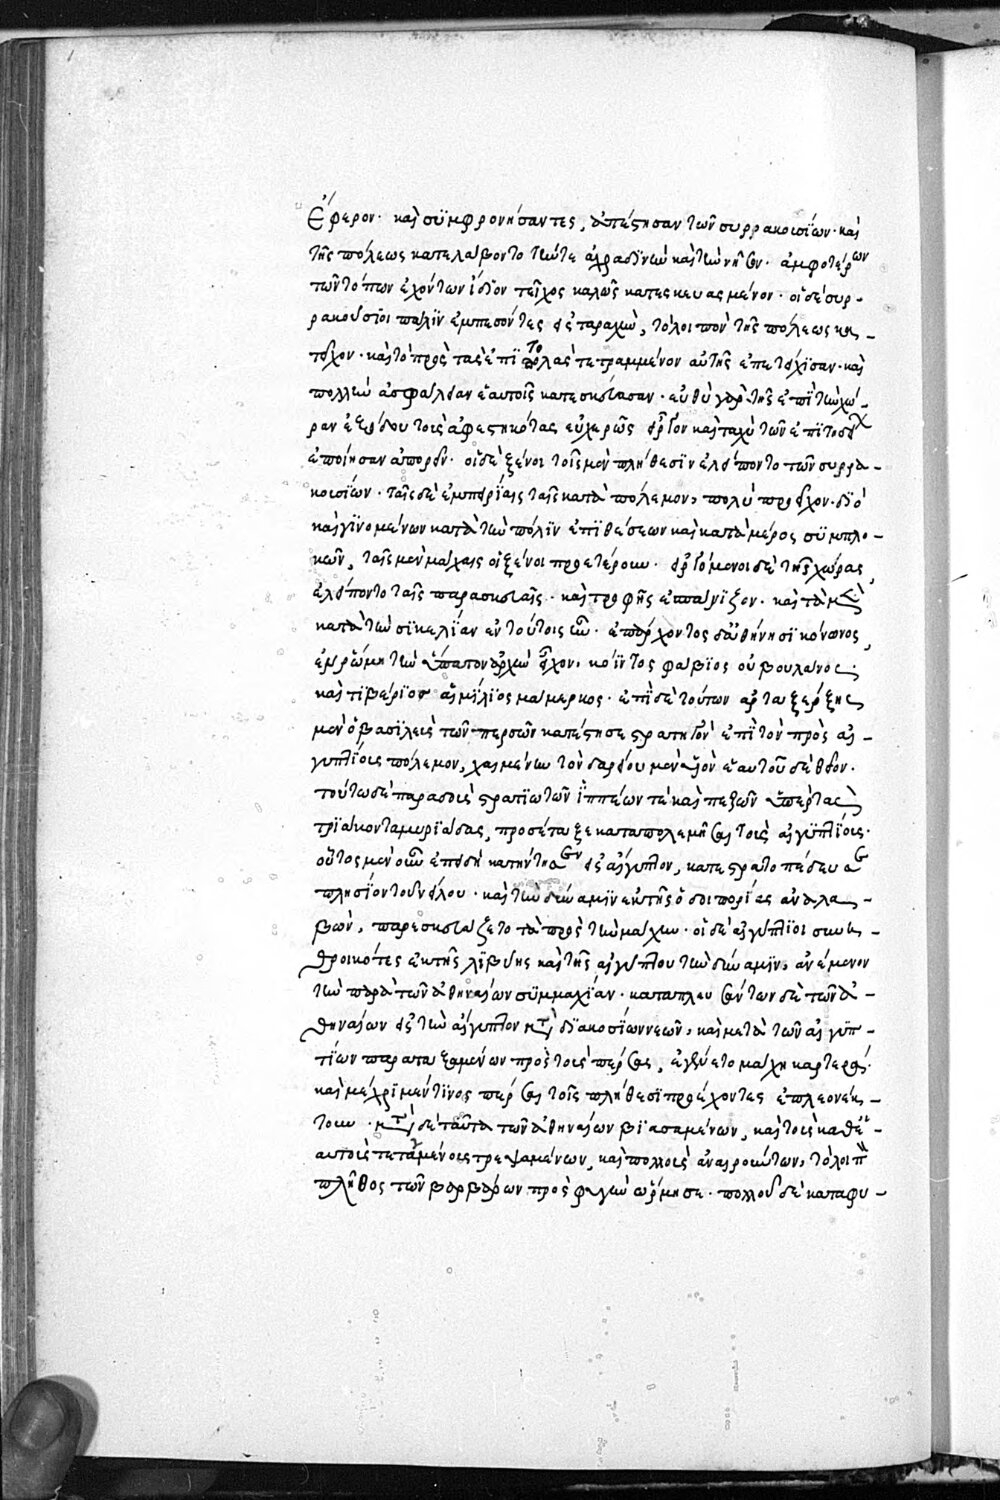 ἔφερον· καὶ συμφρονήσαντες, ἀπέστησαν τῶν συρρακοισίων· καὶ
τῆς πόλεως κατελάβοντο τήν τε ἀχραδινὴν καὶ τὴν νῆσον· ἀμφοτέρων
τῶν τόπων ἐχόντων ἴδιον τεῖχος καλῶς κατεσκευασμένον· οἱ δὲ συρ-
ρακούσιοι πάλιν ἐμπεσόντες εἰς ταραχὴν, τὸ λοιπὸν τῆς πόλεως κα-
τεῖχον· καὶ τὸ πρὸς τὰς ἐπιτολὰς τετραμμένον αὐτῆς ἐπετείχισαν· καὶ
πολλὴν ἀσφάλειαν ἑαυτοῖς κατεσκεύασαν· εὐθὺ γὰρ τῆς ἐπὶ τὴν χώ-
ραν ἐξόδου τοὺς ἀφεστηκότας εὐχερῶς εἶργον καὶ ταχὺ τῶν ἐπιτηδείων
ἐποίησαν ἀπορεῖν· οἱ δὲ ξένοι τοῖς μὲν πλήθεσιν ἐλείποντο τῶν συρρα-
κοισίων· ταῖς δὲ ἐμπειρίαις ταῖς κατὰ πόλεμον, πολὺ προεῖχον· διὸ
καὶ γινομένων κατὰ τὴν πόλιν ἐπιθέσεων καὶ κατὰ μέρος συμπλο-
κῶν, ταῖς μὲν μάχαις οἱ ξένοι προετέρουν· εἰργόμενοι δὲ τῆς χώρας,
ἐλείποντο ταῖς παρασκευαῖς· καὶ τροφῆς ἐσπάνιζον· καὶ τὰ μὲν
κατὰ τὴν σικελίαν ἐν τούτοις ἦν· ἐπάρχοντος δ' ἀθήνησι κόνωνος,
ἐν ῥώμῃ τὴν ὕπατον ἀρχὴν εἶχον, κόϊντος φάβιος οὐβουλανος·
καὶ τιβέριος αἰμίλιος μάμερκος· ἐπὶ δὲ τούτων ἀρταξέρξης
μὲν ὁ βασιλεὺς τῶν περσῶν κατέστησε στρατηγὸν ἐπὶ τὸν πρὸς αἰ-
γυπτίους πόλεμον, χαιμένην τὸν δαρείου μὲν υἱὸν ἑαυτοῦ δὲ θεῖον·
τούτω δὲ παραδοὺς στρατιωτῶν ἱππέων τε καὶ πεζῶν ὑπὲρ τὰς
τριάκοντα μυριάδας, προσέταξε καταπολεμῆσαι τοὺς αἰγυπτίους·
οὗτος μὲν οὖν ἐπειδὴ κατήντησεν εἰς αἴγυπτον, κατεστρατοπέδευσε
πλησίον τοῦ νείλου· καὶ τὴν δύναμιν ἐκ τῆς ὁδοιπορίας ἀναλα-
βὼν, παρεσκευάζετο τὰ πρὸς τὴν μάχην· οἱ δὲ αἰγύπτιοι συνη-
θροικότες ἐκ τῆς λιβύης καὶ τῆς αἰγύπτου τὴν δύναμιν, ἀνέμενον
τὴν παρὰ τῶν ἀθηναίων συμμαχίαν· καταπλευσάντων δὲ τῶν ἀ-
θηναίων εἰς τὴν αἴγυπτον μετὰ διακοσίων νεῶν, καὶ μετὰ τῶν αἰγυπ-
τίων παραταξαμένων πρὸς τοὺς πέρσας, ἐγένετο μάχη καρτερά·
καὶ μέχρι μέν τινος πέρσαι τοῖς πλήθεσι προέχοντες ἐπλεονέκ-
τουν· μετὰ δὲ ταῦτα τῶν ἀθηναίων βιασαμένων, καὶ τοὺς καθ' ἑ-
αυτοὺς τεταγμένους τρεψαμένων, καὶ πολλοὺς ἀναιρούντων, τὸ λοιπὸν
πλῆθος τῶν βαρβάρων πρὸς φυγὴν ὥρμησε· πολλοῦ δὲ καταφυ-